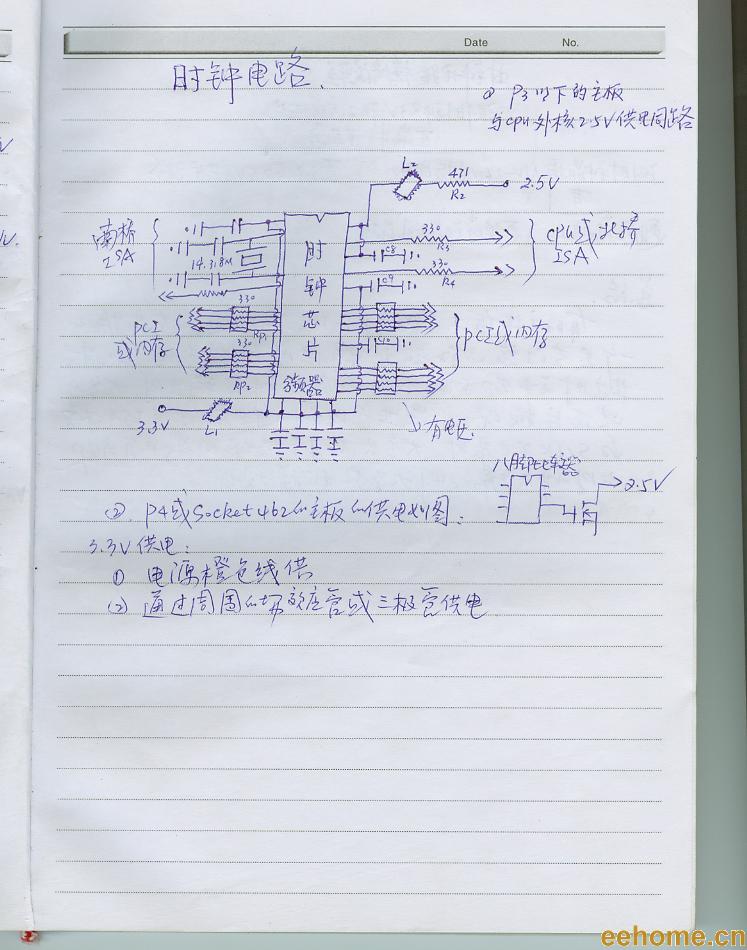 Date No.
时钟电路.
① P3以下的主板
与cpu外核2.5V供电同路
L2 471 R2 2.5V
南桥
ISA
14.318M
330 R3
C8
330 R4
C9
cpu或北桥
ISA
时钟芯片
分频器
PCI
或内存
330 RP1
330 RP2
C10
PCI或内存
3.3V L1
有电压.
八脚比较器
2.5V
②. P4或Socket462的主板的供电如图:
3.3V供电:
① 电源橙色线供
② 通过周围的场效应管或三极管供电
eehome.cn